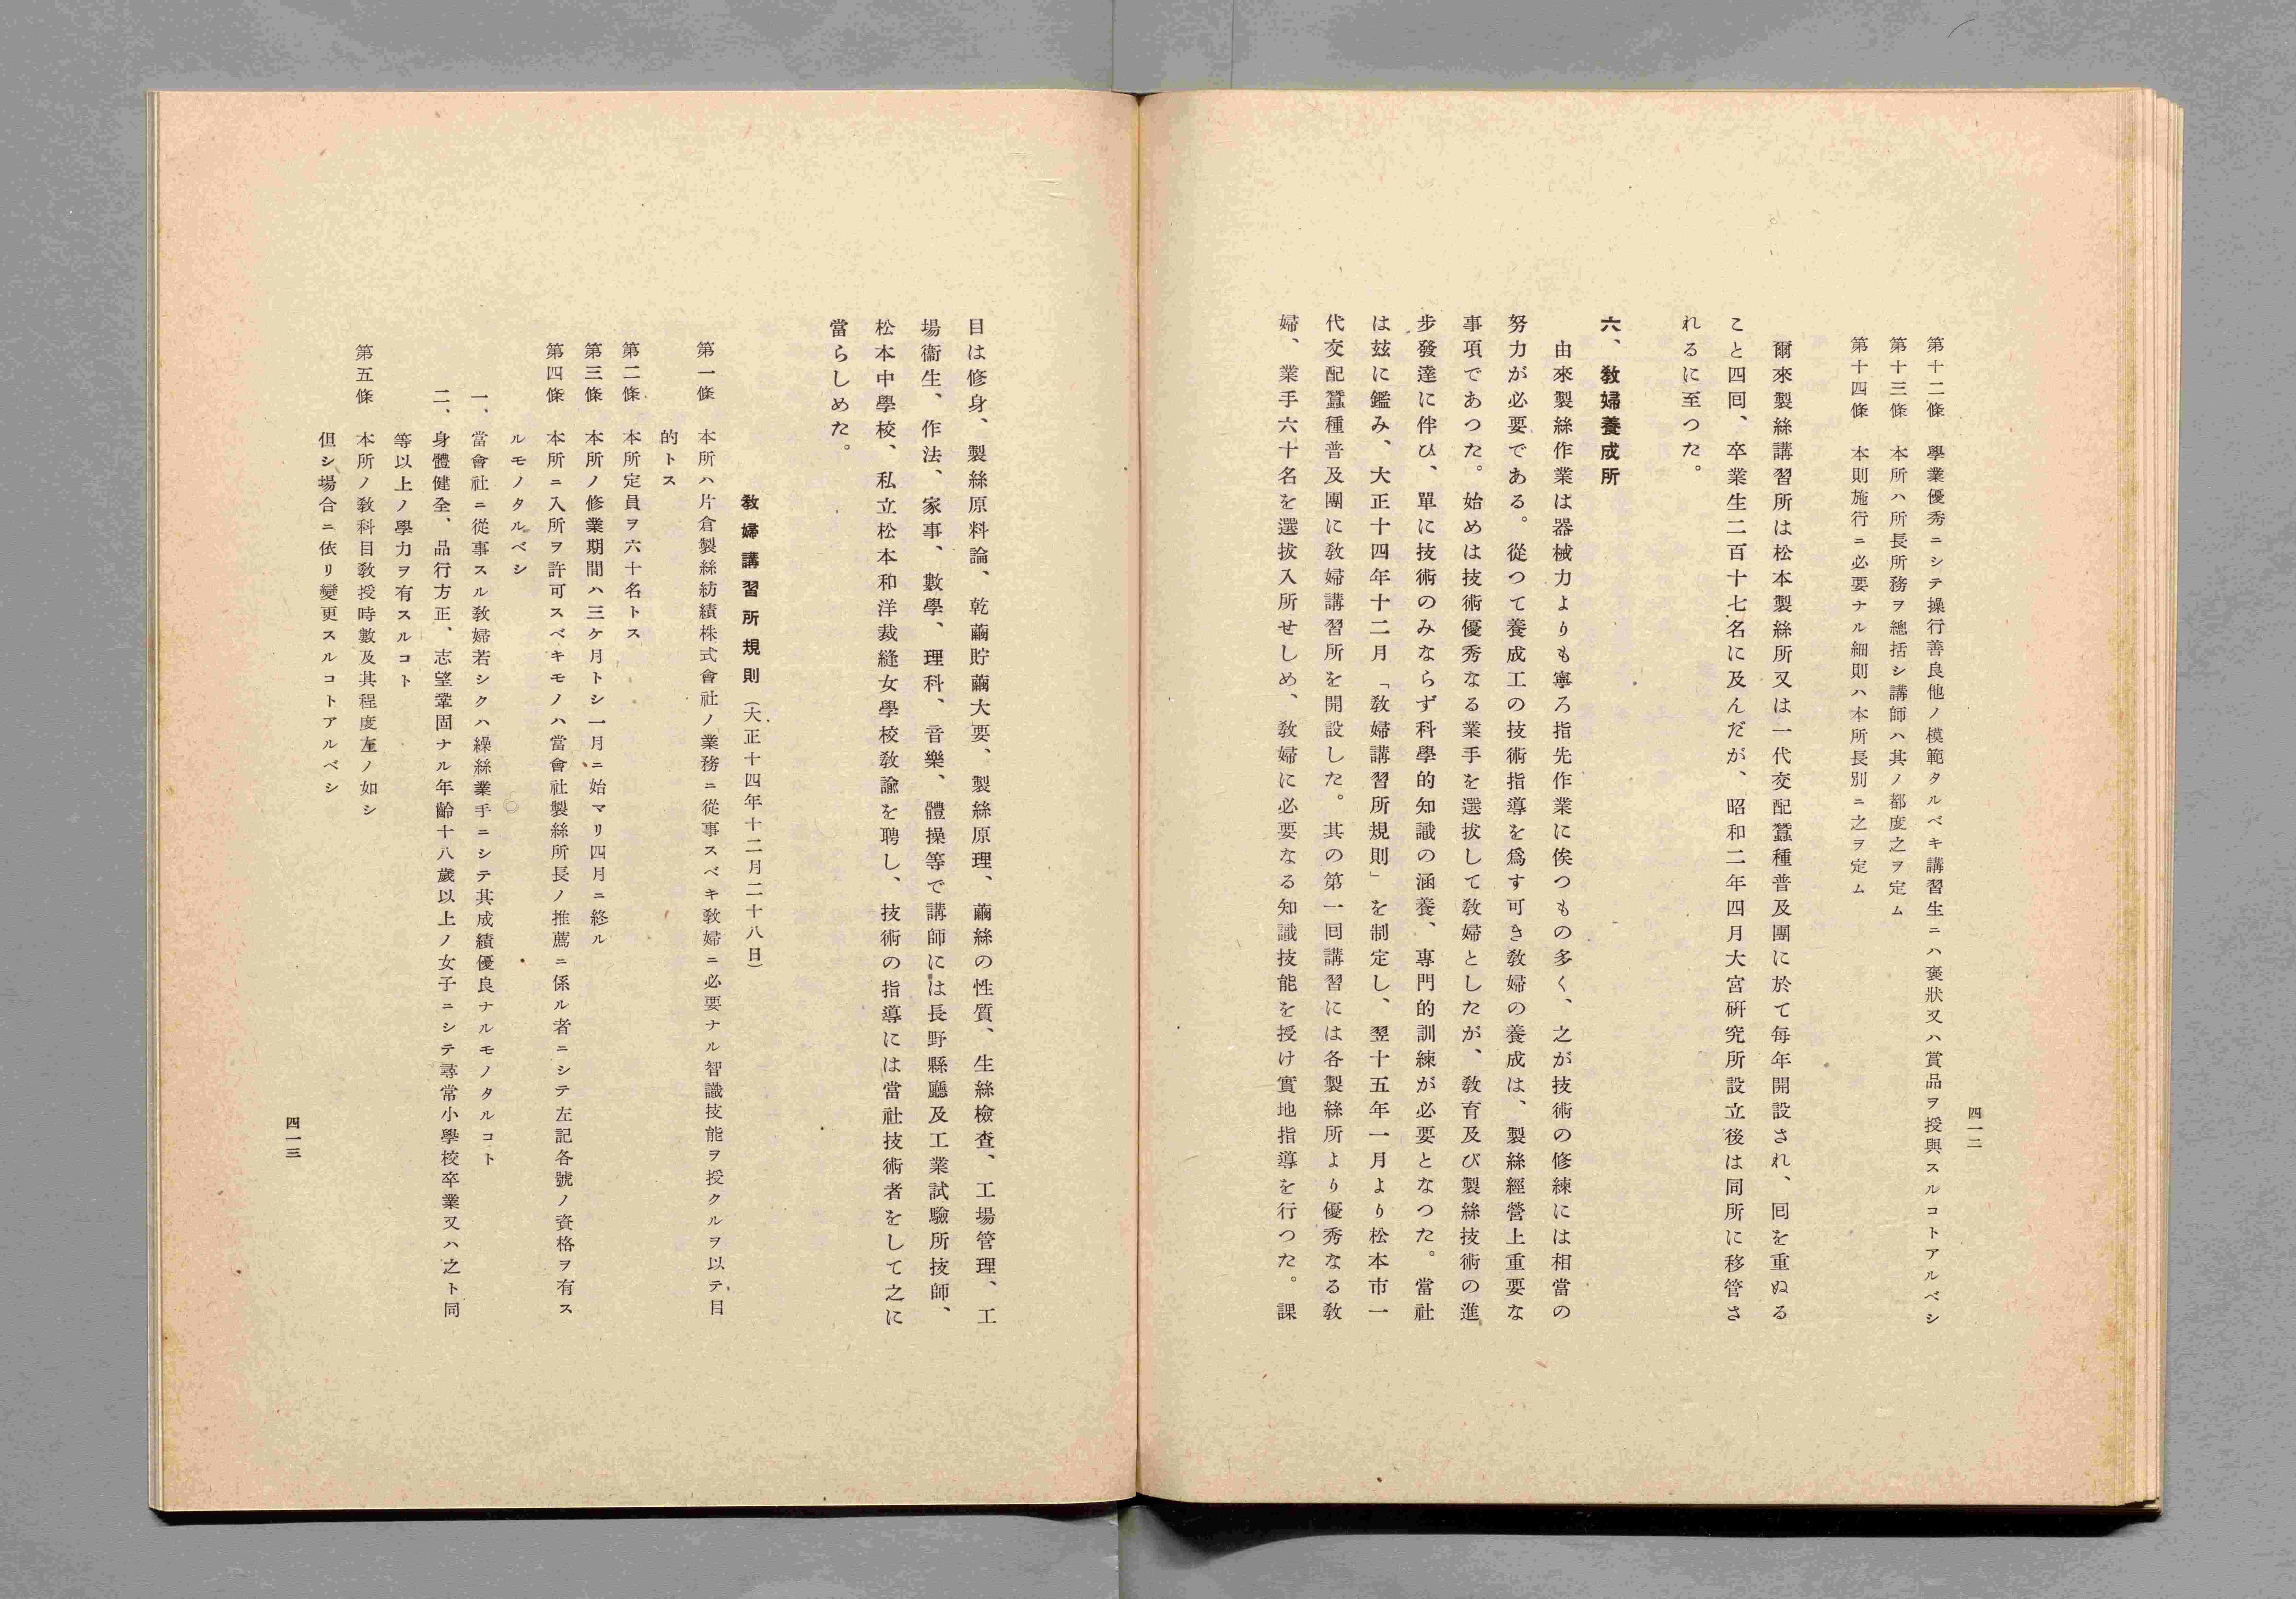 四一二
第十二條　學業優秀ニシテ操行善良他ノ模範タルベキ講習生ニハ褒狀又ハ賞品ヲ授與スルコトアルベシ
第十三條　本所ハ所長所務ヲ總括シ講師ハ其ノ都度之ヲ定ム
第十四條　本則施行ニ必要ナル細則ハ本所長別ニ之ヲ定ム
爾來製絲講習所は松本製絲所又は一代交配蠶種普及團に於て每年開設され、回を重ぬる
こと四回、卒業生二百十七名に及んだが、昭和二年四月大宮硏究所設立後は同所に移管さ
れるに至つた。
六、敎婦養成所
由來製絲作業は器械力よりも寧ろ指先作業に俟つもの多く、之が技術の修練には相當の
努力が必要である。從つて養成工の技術指導を爲す可き敎婦の養成は、製絲經營上重要な
事項であつた。始めは技術優秀なる業手を選拔して敎婦としたが、敎育及び製絲技術の進
步發達に伴ひ、單に技術のみならず科學的知識の涵養、專門的訓練が必要となつた。當社
は玆に鑑み、大正十四年十二月「敎婦講習所規則」を制定し、翌十五年一月より松本市一
代交配蠶種普及團に敎婦講習所を開設した。其の第一回講習には各製絲所より優秀なる敎
婦、業手六十名を選拔入所せしめ、敎婦に必要なる知識技能を授け實地指導を行つた。課
目は修身、製絲原料論、乾繭貯繭大要、製絲原理、繭絲の性質、生絲檢査、工場管理、工
場衞生、作法、家事、數學、理科、音樂、體操等で講師には長野縣廳及工業試驗所技師、
松本中學校、私立松本和洋裁縫女學校敎諭を聘し、技術の指導には當社技術者をして之に
當らしめた。
敎婦講習所規則（大正十四年十二月二十八日）
第一條　本所ハ片倉製絲紡績株式會社ノ業務ニ從事スベキ敎婦ニ必要ナル智識技能ヲ授クルヲ以テ目
的トス
第二條　本所定員ヲ六十名トス
第三條　本所ノ修業期間ハ三ケ月トシ一月ニ始マリ四月ニ終ル
第四條　本所ニ入所ヲ許可スベキモノハ當會社製絲所長ノ推薦ニ係ル者ニシテ左記各號ノ資格ヲ有ス
ルモノタルベシ
一、當會社ニ從事スル敎婦若シクハ繰絲業手ニシテ其成績優良ナルモノタルコト
二、身體健全、品行方正、志望鞏固ナル年齡十八歲以上ノ女子ニシテ尋常小學校卒業又ハ之ト同
等以上ノ學力ヲ有スルコト
第五條　本所ノ敎科目敎授時數及其程度左ノ如シ
但シ場合ニ依リ變更スルコトアルベシ
四一三